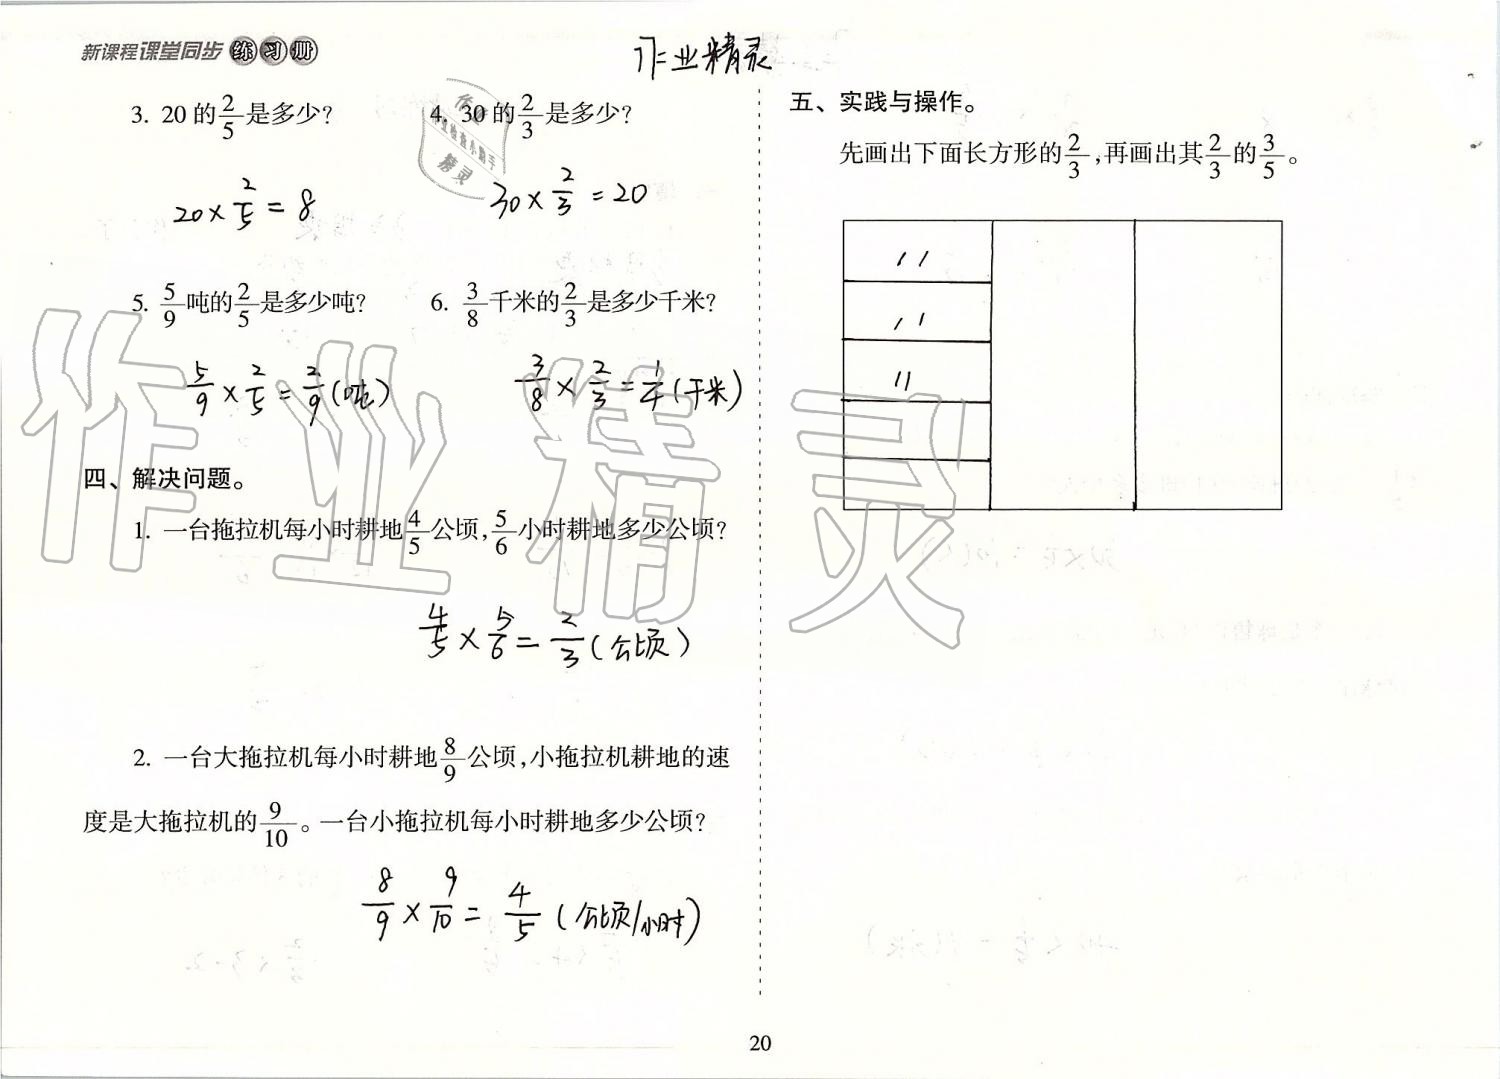 新课程课堂同步练习册
作业精灵
3. 20的2/5是多少?
4. 30的2/3是多少?
20×2/5=8
30×2/3=20
5. 5/9吨的2/5是多少吨?
6. 3/8千米的2/3是多少千米?
5/9×2/5=2/9(吨)
3/8×2/3=1/4(千米)
四、解决问题。
1. 一台拖拉机每小时耕地4/5公顷,5/6小时耕地多少公顷?
4/5×5/6=2/3(公顷)
2. 一台大拖拉机每小时耕地8/9公顷,小拖拉机耕地的速
度是大拖拉机的9/10。一台小拖拉机每小时耕地多少公顷?
8/9×9/10=4/5(公顷/小时)
五、实践与操作。
先画出下面长方形的2/3,再画出其2/3的3/5。
作业精灵
20